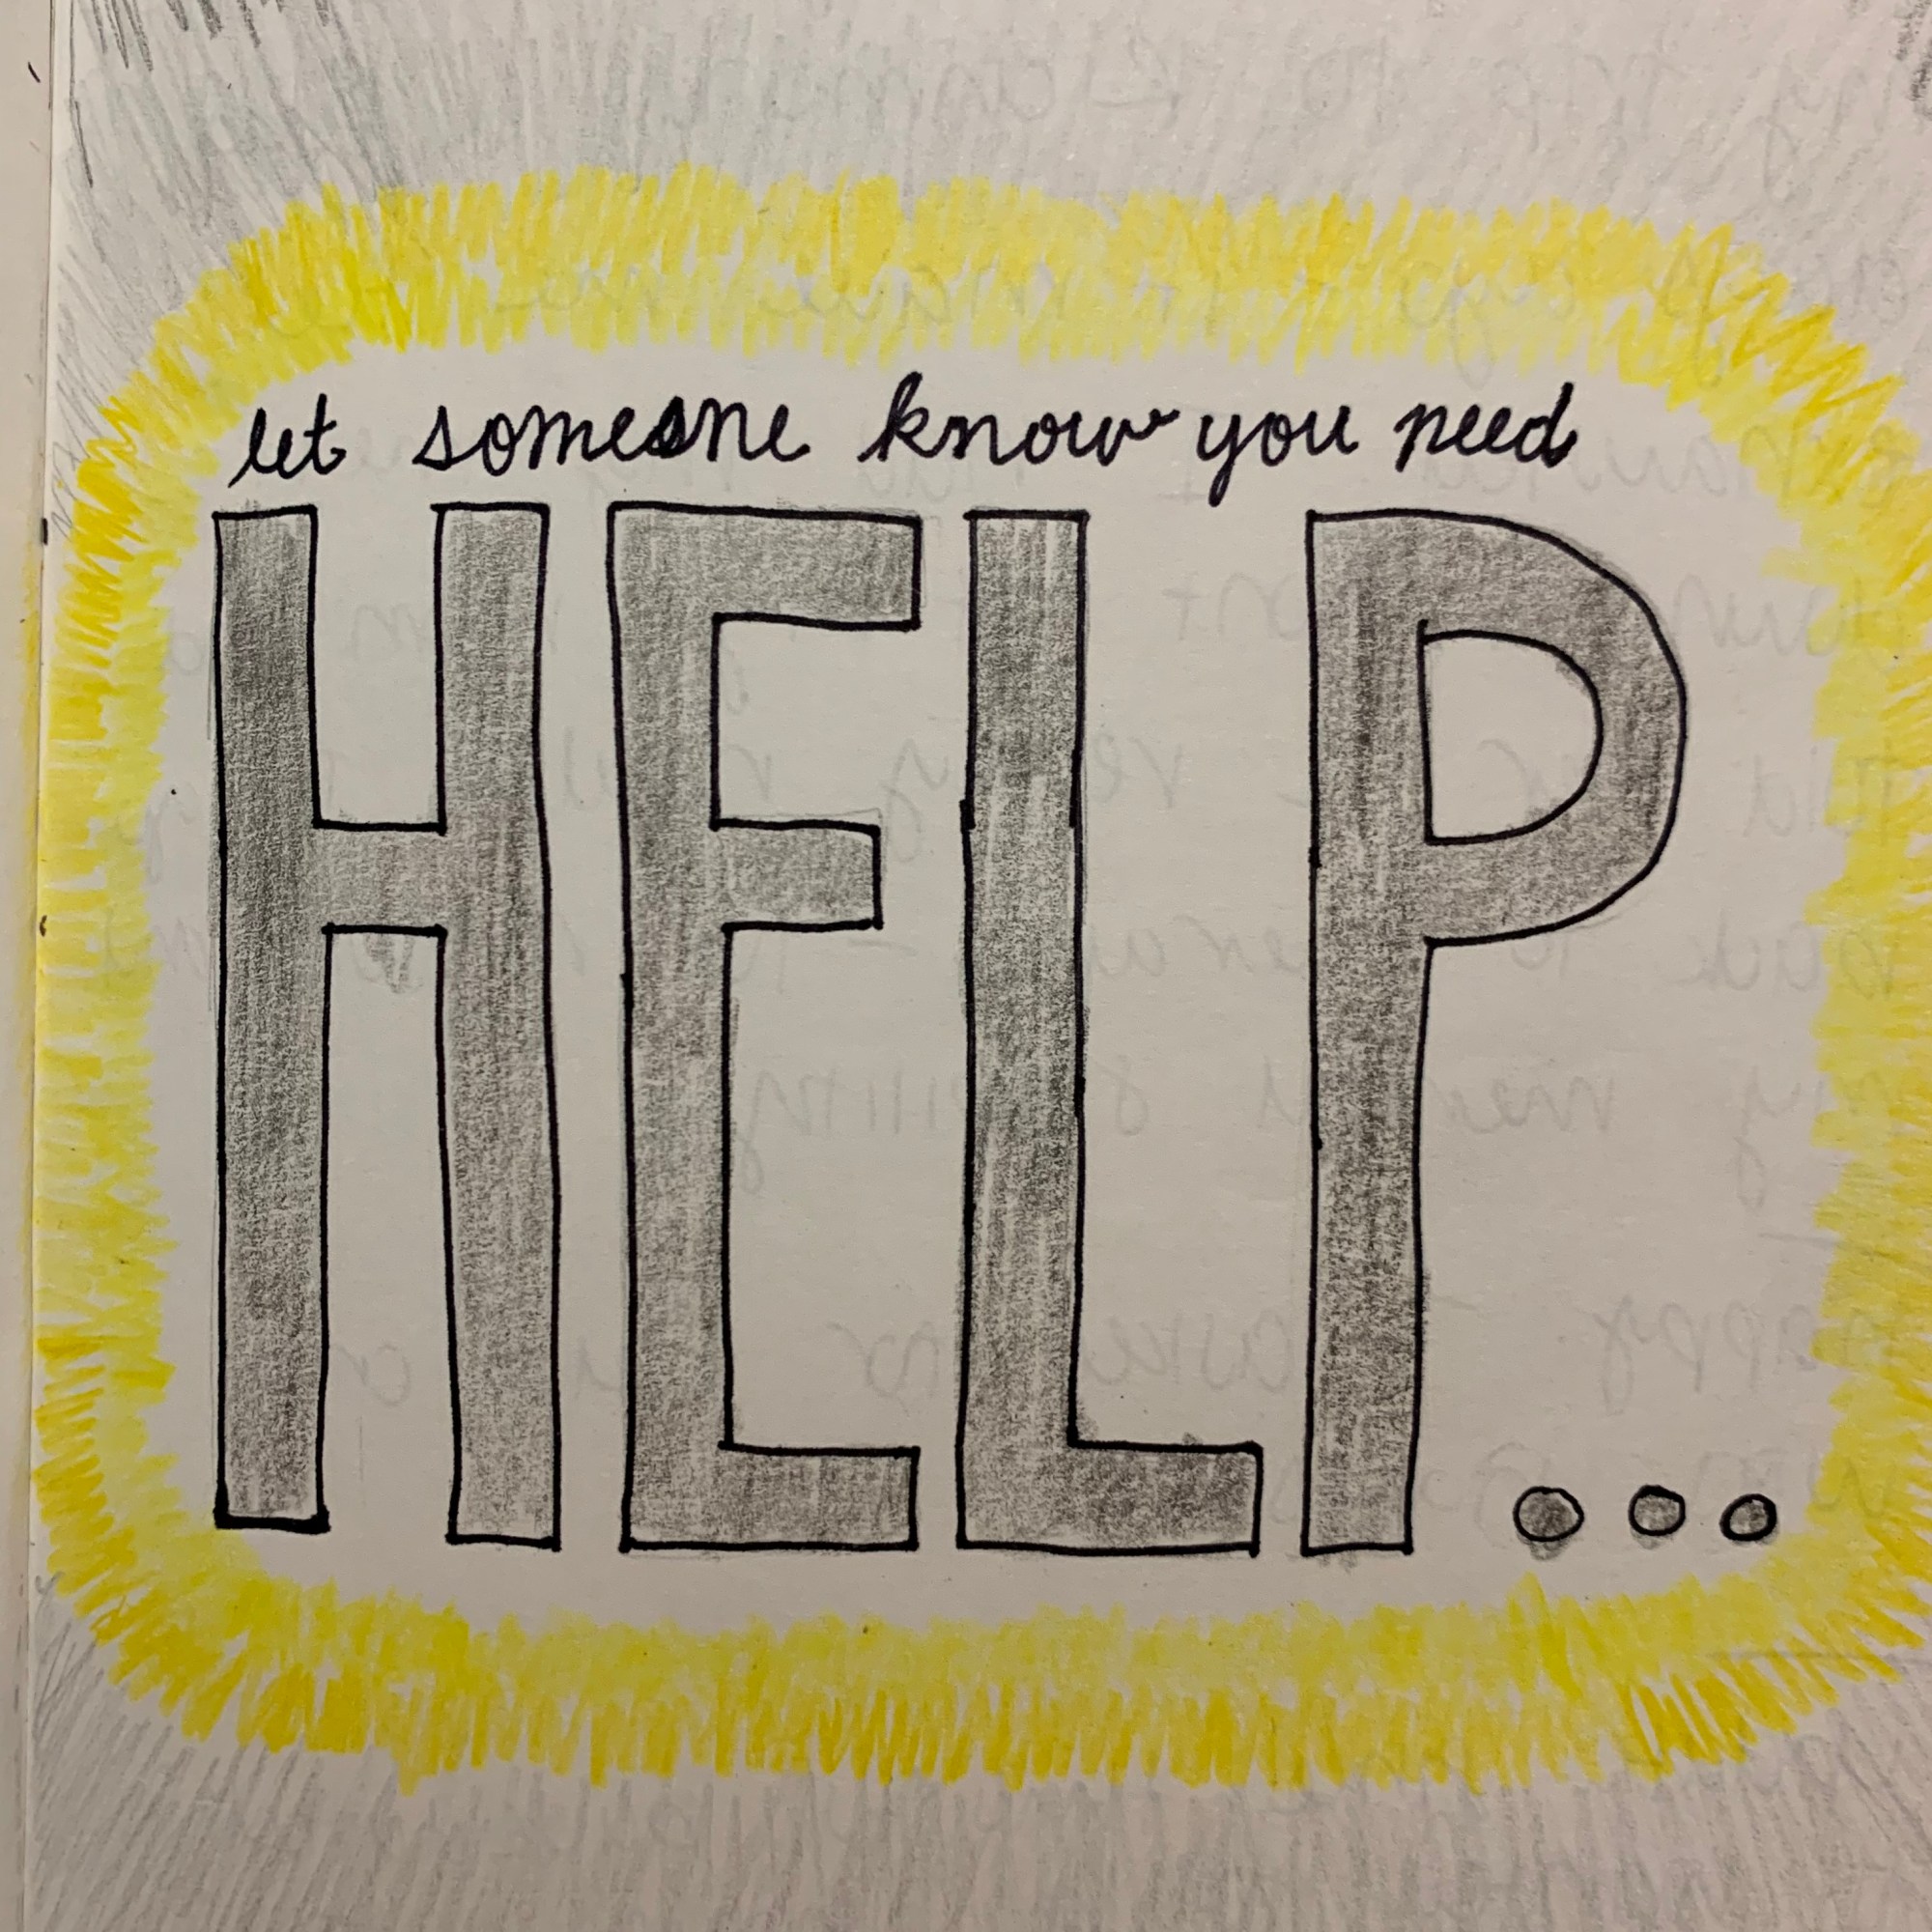 let someone know you need
HELP...